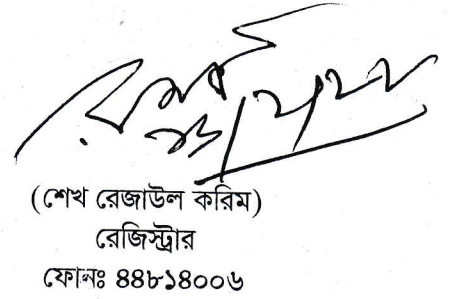 (শেখ রেজাউল করিম)
রেজিস্ট্রার
ফোনঃ ৪৪৮১৪০০৬